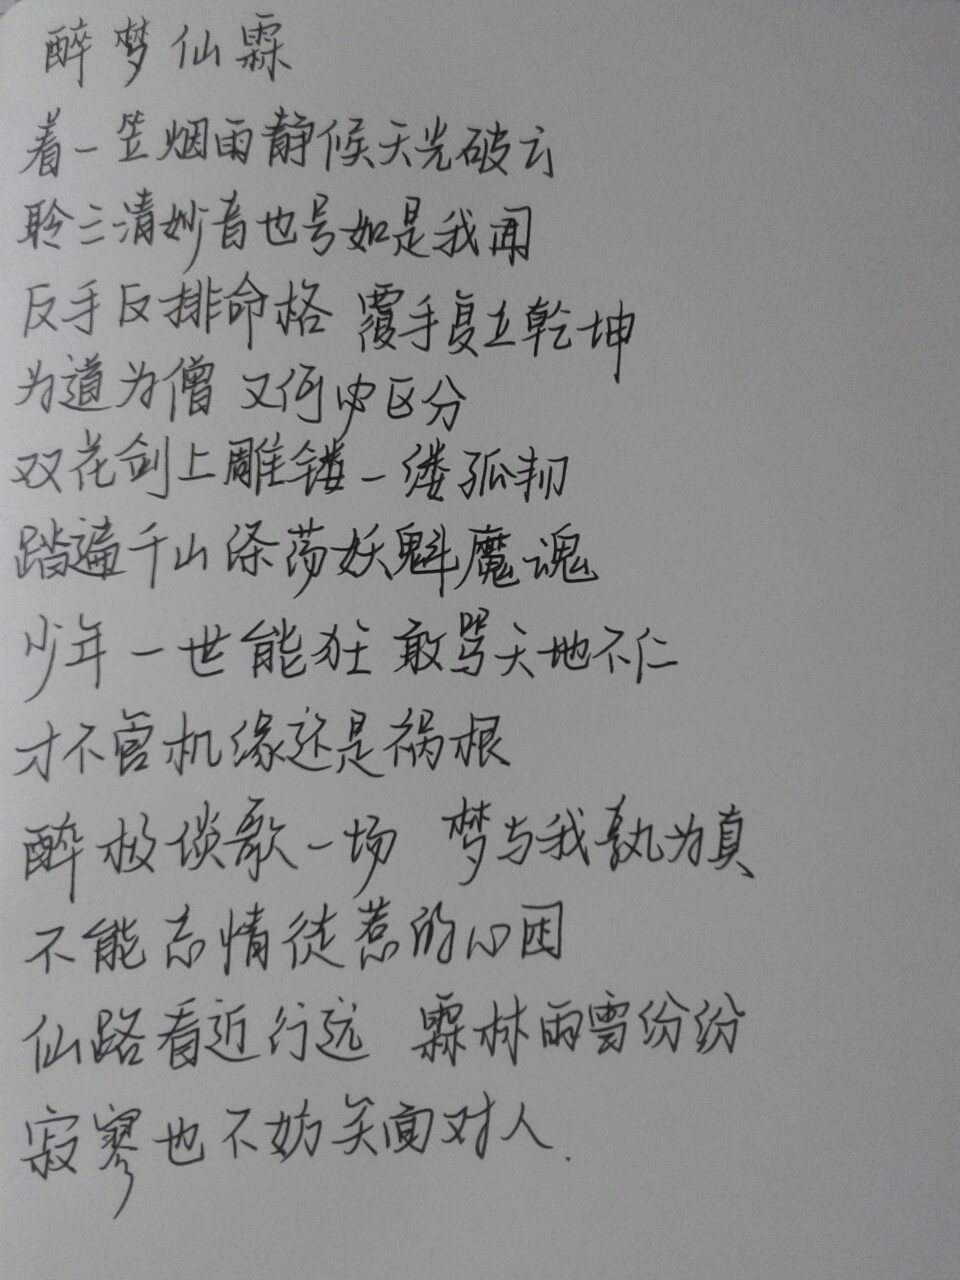 醉梦仙霖
着一笠烟雨静候天光破云
聆三清妙音也号如是我闻
反手反排命格 覆手复立乾坤
为道为僧 又何必区分
双花剑上雕镂一缕孤韧
踏遍千山涤荡妖魁魔魂
少年一世能狂 敢骂天地不仁
才不管机缘还是祸根
醉极谈歌一场 梦与我孰为真
不能忘情徒惹的心困
仙路看近行远 霖林雨雪纷纷
寂寥也不妨笑面对人.